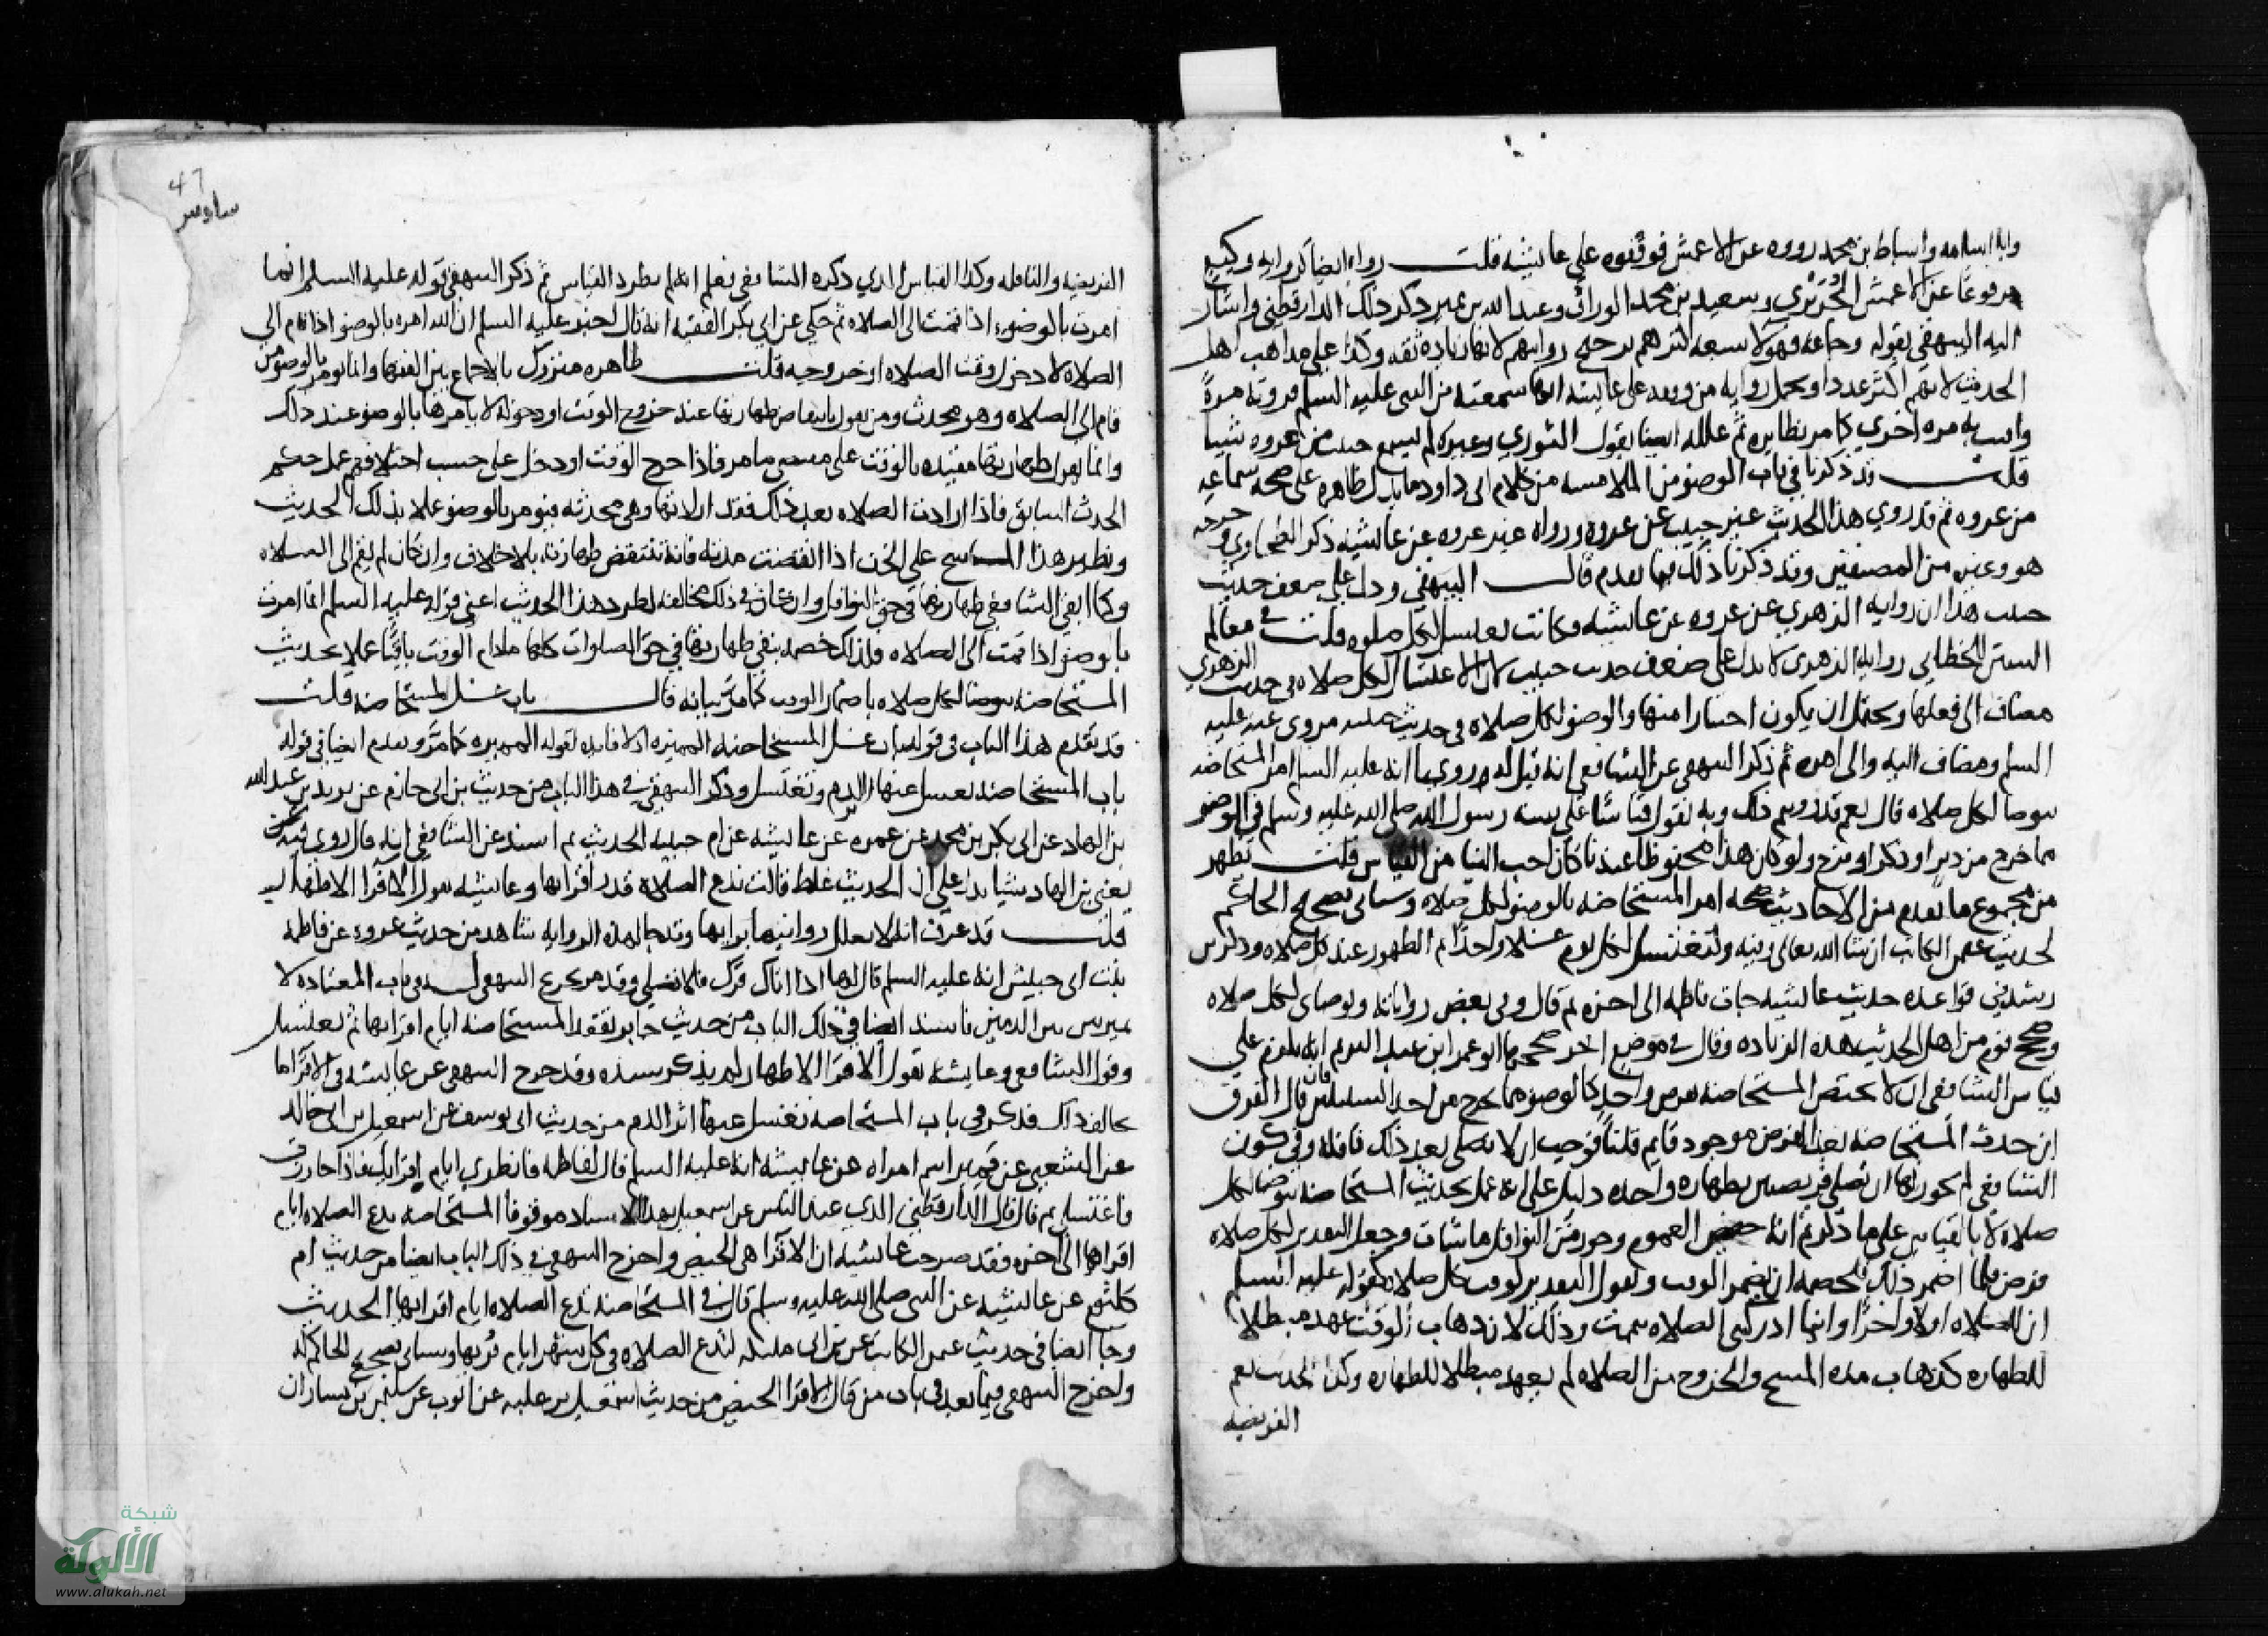 وابا اسامه واسباط بن محمد رووه عن الاعمش فوقفوه على عايشه قلت رواه ايضا كرواية وكيع
مرفوعا عن الاعمش الخريبي وسعيد بن محمد الوراق وعبد الله بن نمير ذكر ذلك الدارقطني واشار
اليه البيهقي بقوله وجماعه فهولا سبعه اكثرهم يرجح روايتهم لانها زياده ثقه وكذا على مذاهب اهل
الحديث لانهم اكثر عددا ويحمل روايه من وقفه على عايشه انها سمعته من النبي عليه السلم فروته مرة
وافتت به مره اخري كما مر نظايره ثم علله ايضا بقول الثوري وغيره لم يسمع حبيب من عروه شيئا
قلت قد ذكرنا في باب الوضو من الملامسه من كلام ابي داود ما يدل ظاهره على صحة سماعه
من عروه ثم قد روي هذا الحديث غير حبيب عن عروه ورواه غير عروه عن عايشه ذكر الطحاوي وخرجه
هو وغيره من المصنفين وقد ذكرنا ذلك فيما تقدم قال البيهقي ودل على ضعف حديث
حبيب هذا ان رواية الزهري عن عروه عن عايشه فكانت تغتسل لكل صلوه قلت في معالم
السنن للخطابي رواية الزهري لا يدل على ضعف حديث حبيب لان الاغتسال لكل صلاه في حديث الزهري
مضاف الى فعلها ويحتمل ان يكون اختيارا منها والوضو لكل صلاه في حديث حبيب مروي عنه عليه
السلم ومضاف اليه والى امره ثم ذكر البيهقي عن الشافعي انه قيل له وروينا انه عليه السلم امر المستحاضه
تتوضا لكل صلاه قال نعم قد رويتم ذلك وبه نقول قياسا على سنه رسول الله صلى الله عليه وسلم في الوضو
مما خرج من دبر او ذكر او فرج ولو كان هذا محفوظا عندنا كان احب الينا من القياس قلت يظهر
من مجموع ما تقدم من الاحاديث صحه امر المستحاضه بالوضو لكل صلاه وسياتي تصحيح الحاكم
لحديث عثمن الكاتب ان شا الله تعالى وفيه ولتغتسل لكل يوم غسلا واحدا ثم الطهور عند كل صلاه وذكر بن
رشد في قواعده حديث عايشه جات فاطمه الى اخره ثم قال وفي بعض رواياته وتوضاي لكل صلاه
وصحح قوم من اهل الحديث هذه الزياده وقال في موضع اخر صححها ابو عمر ابن عبد البر ثم انه يلزم على
قياس الشافعي ان لا يختص المستحاضه بفرض واحد كالوضو مما يخرج من احد السبيلين فان قال الفرق
ان حدث المستحاضه بعد الفرض موجود قايم قلنا فوجب ان لا تصلي بعد ذلك نافله وفي كون
الشافعي لم يجوز لها ان تصلي فريضتين بطهاره واحده دليل على انه عمل بحديث المستحاضه تتوضا لكل
صلاه لا بالقياس على ما ذكر ثم انه خصص العموم وجوز من النوافل ما شات وجعل التقدير لكل صلاه
فرض فلما اضمر ذلك فلخصمه ان يضمر الوقت ويقول التقدير لوقت كل صلاه كقوله عليه السلم
ان للصلاه اولا واخرا وانما ادركتني الصلاه تيممت وذلك لان ذهاب الوقت عهد مبطلا
للطهاره كذهاب مده المسح والخروج من الصلاه لم يعهد مبطلا للطهاره وكذا الحدث يعم
الفريضه
47
سادس
الفريضه والنافله وكذا القياس الذي ذكره الشافعي نعلم انه لم يطرد القياس ثم ذكر البيهقي قوله عليه السلم انما
امرت بالوضوء اذا قمت الى الصلاه ثم حكى عن ابي بكر الفقيه انه قال اخبر عليه السلم ان الله امره بالوضو اذا قام الى
الصلاه لا دخول وقت الصلاه او خروجه قلت ظاهره متروك بالاجماع بين الفقها وانما يومر بالوضو من
قام الى الصلاه وهو محدث ومن يقول بانتقاض طهارتها عند خروج الوقت او دخوله لا يامرها بالوضو عند ذلك
وانما يقول طهارتها مقيده بالوقت على مقتضى ما مر فاذا خرج الوقت او دخل على حسب اختلافهم عمل حكم
الحدث السابق فاذا ارادت الصلاه بعد ذلك فقد ارادتها وهي محدثه فتومر بالوضو عملا بذلك الحديث
ونظير هذا الماسح على الخف اذا انقضت مدته فانه تنتقض طهارته بلا خلاف وان كان لم يقم الى الصلاه
وكما ابقى الشافعي طهارتها في حق النوافل وان كان في ذلك مخالفه لطرد هذا الحديث اعني قوله عليه السلم انما امرت
بالوضو اذا قمت الى الصلاه فلذلك خصمه يبقي طهارتها في حق الصلوات كلها ما دام الوقت باقيا عملا بحديث
المستحاضه تتوضا لكل صلاه باضمار الوقت كما مر بيانه قال باب غسل المستحاضه قلت
قد تقدم هذا الباب في قوله باب غسل المستحاضه المميزه اذ لا فايده لقوله المميزه كما مر وتقدم ايضا في قوله
باب المستحاضه تغسل عنها اثر الدم وتغتسل وذكر البيهقي في هذا الباب من حديث بن ابي حازم عن يزيد بن عبد الله
بن الهاد عن ابي بكر بن محمد عن عمره عن عايشه عن ام حبيبه الحديث ثم اسند عن الشافعي انه قال روى غير
يعني بن الهاد شيئا يدل على ان الحديث غلط قالت تدع الصلاه قدر اقرائها وعايشه تقول الاقرا الاطهار
قلت قد عرف انه لا تعلل روايتها برايها وقد جا لهذه الروايه شاهد من حديث عروه عن فاطمه
بنت ابي حبيش انه عليه السلم قال لها اذا اتاك قرؤك فلا تصلي وقد مر تخريج البيهقي له في باب المعتاده لا
تميز بين الدمين فاسند ايضا في ذلك الباب من حديث جابر تقعد المستحاضه ايام اقرائها ثم تغتسل
وقول الشافعي وعايشه تقول الاقرا الاطهار لم يذكر سنده وقد خرج البيهقي عن عايشه في الاقرا ما
يخالف ذلك فذكر في باب المستحاضه تغسل عنها اثر الدم من حديث ابي يوسف عن اسمعيل بن ابي خالد
عن الشعبي عن قمير امراه عن عايشه انه عليه السلم قال لفاطمه فانظري ايام اقرائك فاذا جاوزت
فاغتسلي ثم قال قال الدارقطني الذي عند الناس عن اسمعيل بهذا الاسناد موقوفا المستحاضه تدع الصلاه ايام
اقرائها الى اخره فقد صرحت عايشه ان الاقرا هي الحيض واخرج البيهقي في ذلك الباب ايضا من حديث ام
كلثوم عن عايشه عن النبي صلى الله عليه وسلم قال في المستحاضه تدع الصلاه ايام اقرائها الحديث
وجا ايضا في حديث عثمن الكاتب عن بن ابي مليكه لتدع الصلاه في كل شهر ايام قرئها وسياتي تصحيح الحاكم له
واخرج البيهقي فيما بعد في باب من قال الاقرا الحيض من حديث اسمعيل بن عليه عن ايوب عن سليمن بن يسار ان
شبكة
الألوكة
www.alukah.net